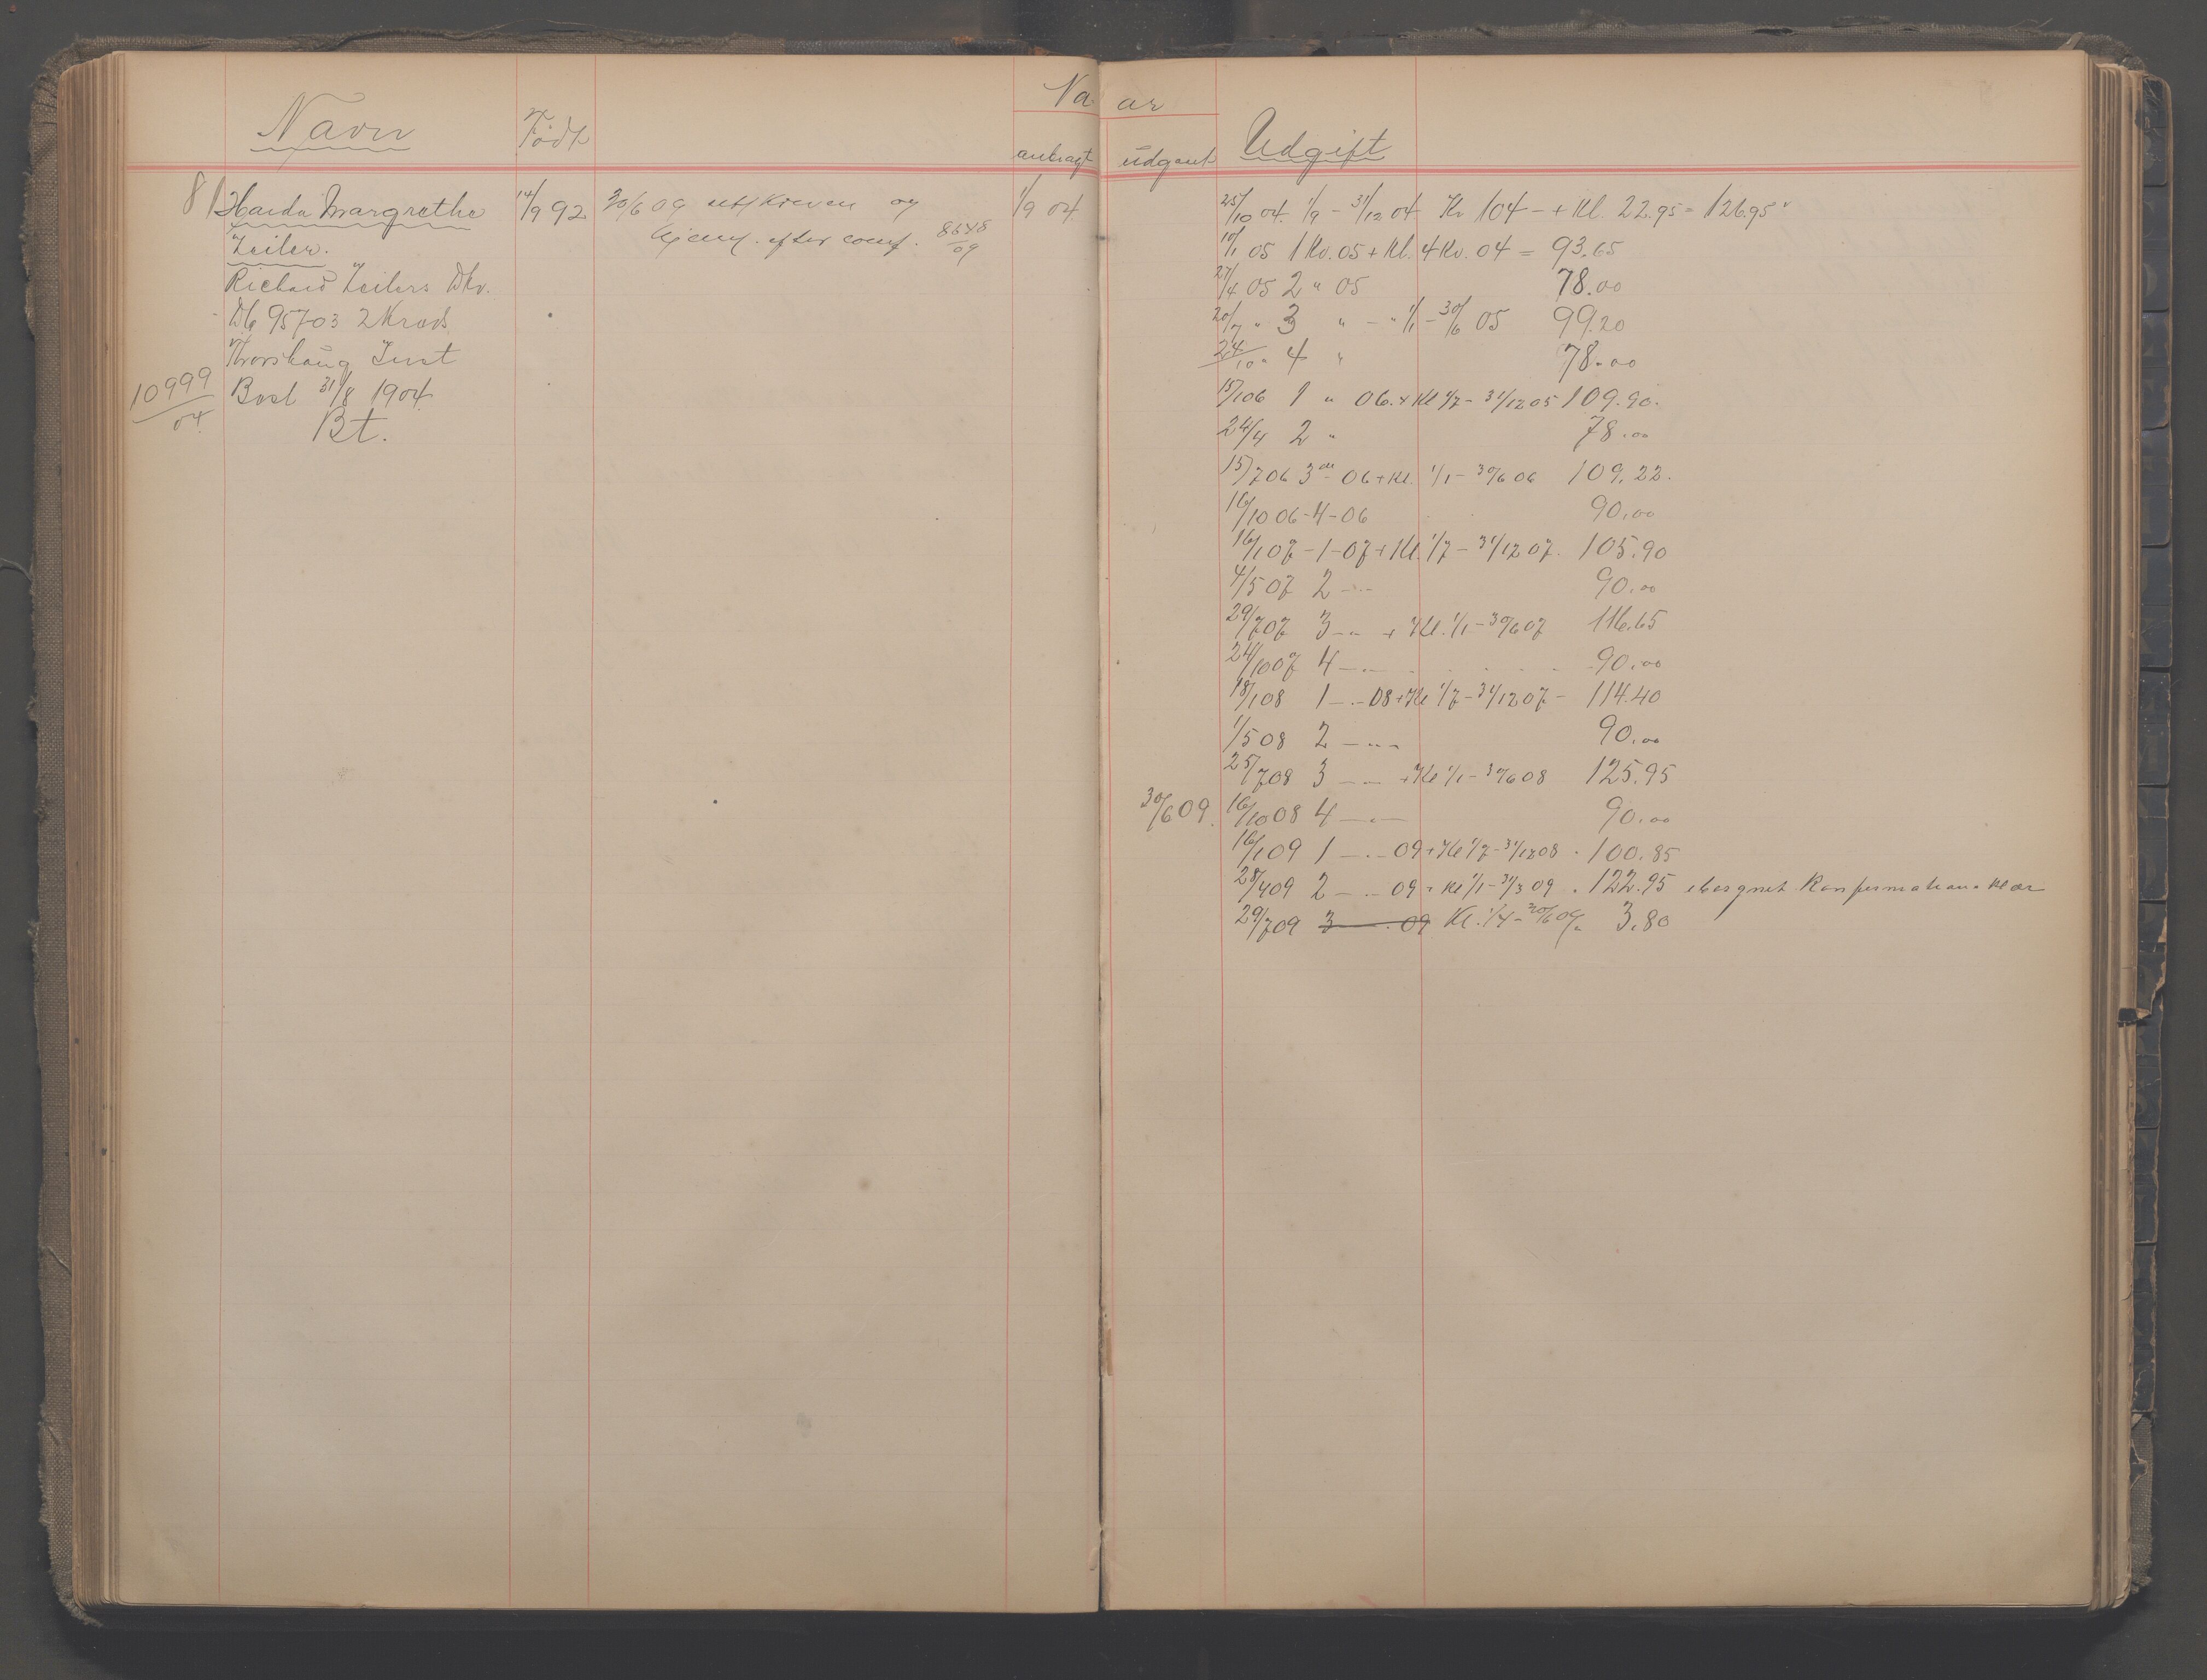 Navn
Født
Na ar
anbragt
udgaaet
Udgift
81 Margrethe
Zeiler.
Richard Zeilers Dtr.
95703 2 Kreds
Inst
Besl 31/8 1904
10999/04
Bt.
14/9 92
30/6 09 udskreven og
hjem. efter conf. 8648/09
1/9 04
25/10 04. 1/9 - 31/12 04 Kr 104 - + Kl. 22.95 = 126.95
10/1 05 1 Kv. 05 + Kl. 4 Kv. 04 = 93.65
27/4 05 2 " 05 78.00
20/7 " 3 " - " 1/1 - 30/6 05 99.20
24/10 " 4 " 78.00
15/1 06 1 " 06. + Kl 1/7 - 31/12 05 109.90.
24/4 2 " 78.00
15/7 06 3 - 06 + Kl. 1/1 - 30/6 06 109.22.
16/10 06 - 4 - 06 90.00
16/1 07 - 1 - 07 + Kl. 1/7 - 31/12 07. 105.90
4/5 07 2 - " - 90.00
29/7 07 3 - " - + Kl. 1/1 - 30/6 07 116.65
24/10 07 4 - " - 90.00
18/1 08 1 - " - 08 + Kl 1/7 - 31/12 07 - 114.40
1/5 08 2 - " - 90.00
25/7 08 3 - " - + Kl 1/1 - 30/6 08 125.95
30/6 09. 16/10 08 4 - " - 90.00
16/1 09 1 - " - 09 + Kl 1/7 - 31/12 08 . 100.85
28/4 09 2 - " - 09 + Kl 1/1 - 31/3 09 . 122.95 iberegnet Konfirmations Klær
29/7 09 3 - . 09 Kl. 1/4 - 30/6 09. 3.80